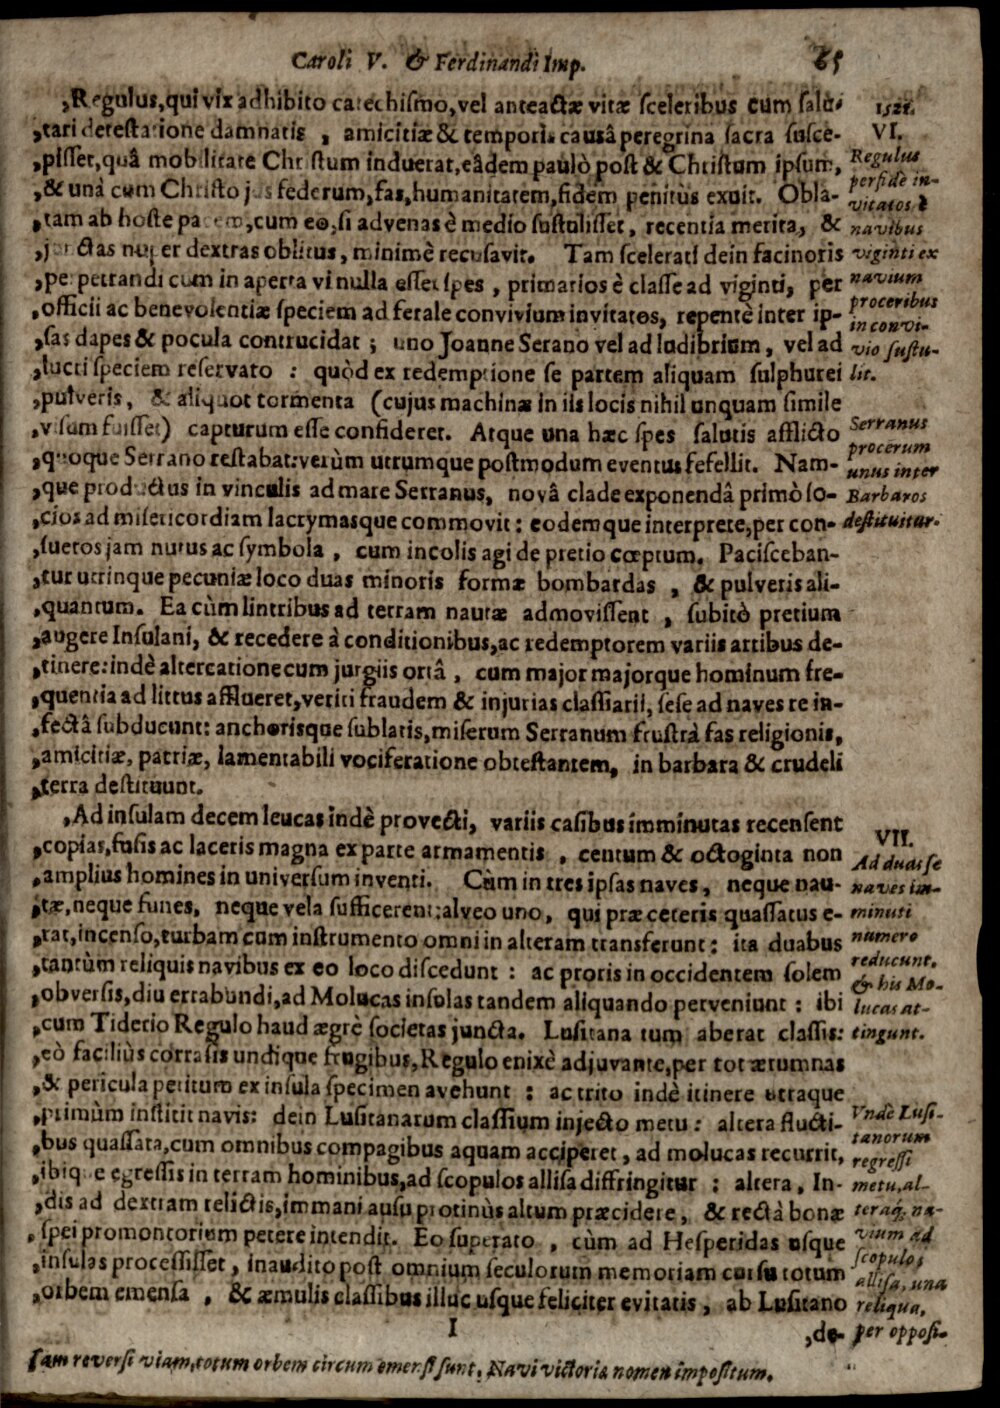 Caroli V. & Ferdinandi Imp. 65
,Regulus,qui vix adhibito catechismo,vel anteactæ vitæ sceleribus cum salu-
,tari detestatione damnatis , amicitiæ & temporis causâ peregrina sacra susce-
,pisset,quâ mobilitate Christum induerat,eâdem paulò post & Christum ipsum,
,& unà cum Christo jus federum,fas,humanitatem,fidem penitùs exuit. Obla-
,tam ab hoste pacem,cum eo,si advenas è medio sustulisset, recentia merita, &
,junctas nuper dextras oblitus, minimè recusavit. Tam scelerati dein facinoris
,perpetrandi cum in aperta vi nulla esset spes , primarios è classe ad viginti, per
,officii ac benevolentiæ speciem ad ferale convivium invitatos, repentè inter ip-
,sas dapes & pocula contrucidat ; uno Joanne Serano vel ad ludibrium, vel ad
,lucri speciem reservato : quòd ex redemptione se partem aliquam sulphurei
,pulveris, & aliquot tormenta (cujus machinæ in iis locis nihil unquam simile
,visum fuisset) capturum esse confideret. Atque una hæc spes salutis afflicto
,quoque Serrano restabat:verùm utrumque postmodum eventus fefellit. Nam-
,que productus in vinculis ad mare Serranus, novâ clade exponendâ primò so-
,cios ad misericordiam lacrymasque commovit: eodemque interprete,per con-
,suetos jam nutus ac symbola , cum incolis agi de pretio cœptum. Pacisceban-
,tur utrinque pecuniæ loco duas minoris formæ bombardas , & pulveris ali-
,quantum. Ea cùm lintribus ad terram nautæ admovissent , subitò pretium
,augere Insulani, & recedere à conditionibus,ac redemptorem variis artibus de-
,tinere:indè altercatione cum jurgiis ortâ , cum major majorque hominum fre-
,quentia ad littus afflueret,veriti fraudem & injurias classiarii, sese ad naves re in-
,fectâ subducunt: anchorisque sublatis,miserum Serranum frustrà fas religionis,
,amicitiæ, patriæ, lamentabili vociferatione obtestantem, in barbara & crudeli
,terra destituunt.
,Ad insulam decem leucas indè provecti, variis casibus imminutas recensent
,copias,fusis ac laceris magna ex parte armamentis , centum & octoginta non
,amplius homines in universum inventi. Cùm in tres ipsas naves, neque nau-
,tæ,neque funes, neque vela sufficerent;alveo uno, qui præ ceteris quassatus e-
,rat,incenso,turbam cum instrumento omni in alteram transferunt: ita duabus
,tantùm reliquis navibus ex eo loco discedunt : ac proris in occidentem solem
,obversis,diu errabundi,ad Molucas insulas tandem aliquando perveniunt : ibi
,cum Tiderio Regulo haud ægrè societas juncta. Lusitana tum aberat classis:
,eò faciliùs corrasis undique frugibus,Regulo enixè adjuvante,per tot ærumnas
,& pericula petitum ex insula specimen avehunt : ac trito indè itinere utraque
,primùm institit navis: dein Lusitanarum classium injecto metu: altera flucti-
,bus quassata,cum omnibus compagibus aquam acciperet, ad molucas recurrit,
,ibique egressis in terram hominibus,ad scopulos allisa diffringitur : altera, In-
,dis ad dextram relictis,immani ausu protinùs altum præcidere, & rectà bonæ
,spei promontorium petere intendit. Eo superato , cùm ad Hesperidas usque
,insulas processisset, inaudito post omnium seculorum memoriam cursu totum
,orbem emensa , & æmulis classibus illuc usque feliciter evitatis, ab Lusitano
I
,de-
1521.
VI.
Regulus
perfidè in-
vitatos è
navibus
viginti ex
navium
proceribus
in convi-
vio sustu-
lit.
Serranus
procerum
unus inter
Barbaros
destituitur.
VII.
Ad duas se
naves im-
minuti
numero
reducunt,
& his Mo-
lucas at-
tingunt.
Vndè Lusi-
tanorum
regressi
metu,al-
teraq; na-
vium ad
scopulos
allisa, una
reliqua,
per opposi-
tam reversi viam,totum orbem circum emensi sunt. Navi victoria nomen impositum.